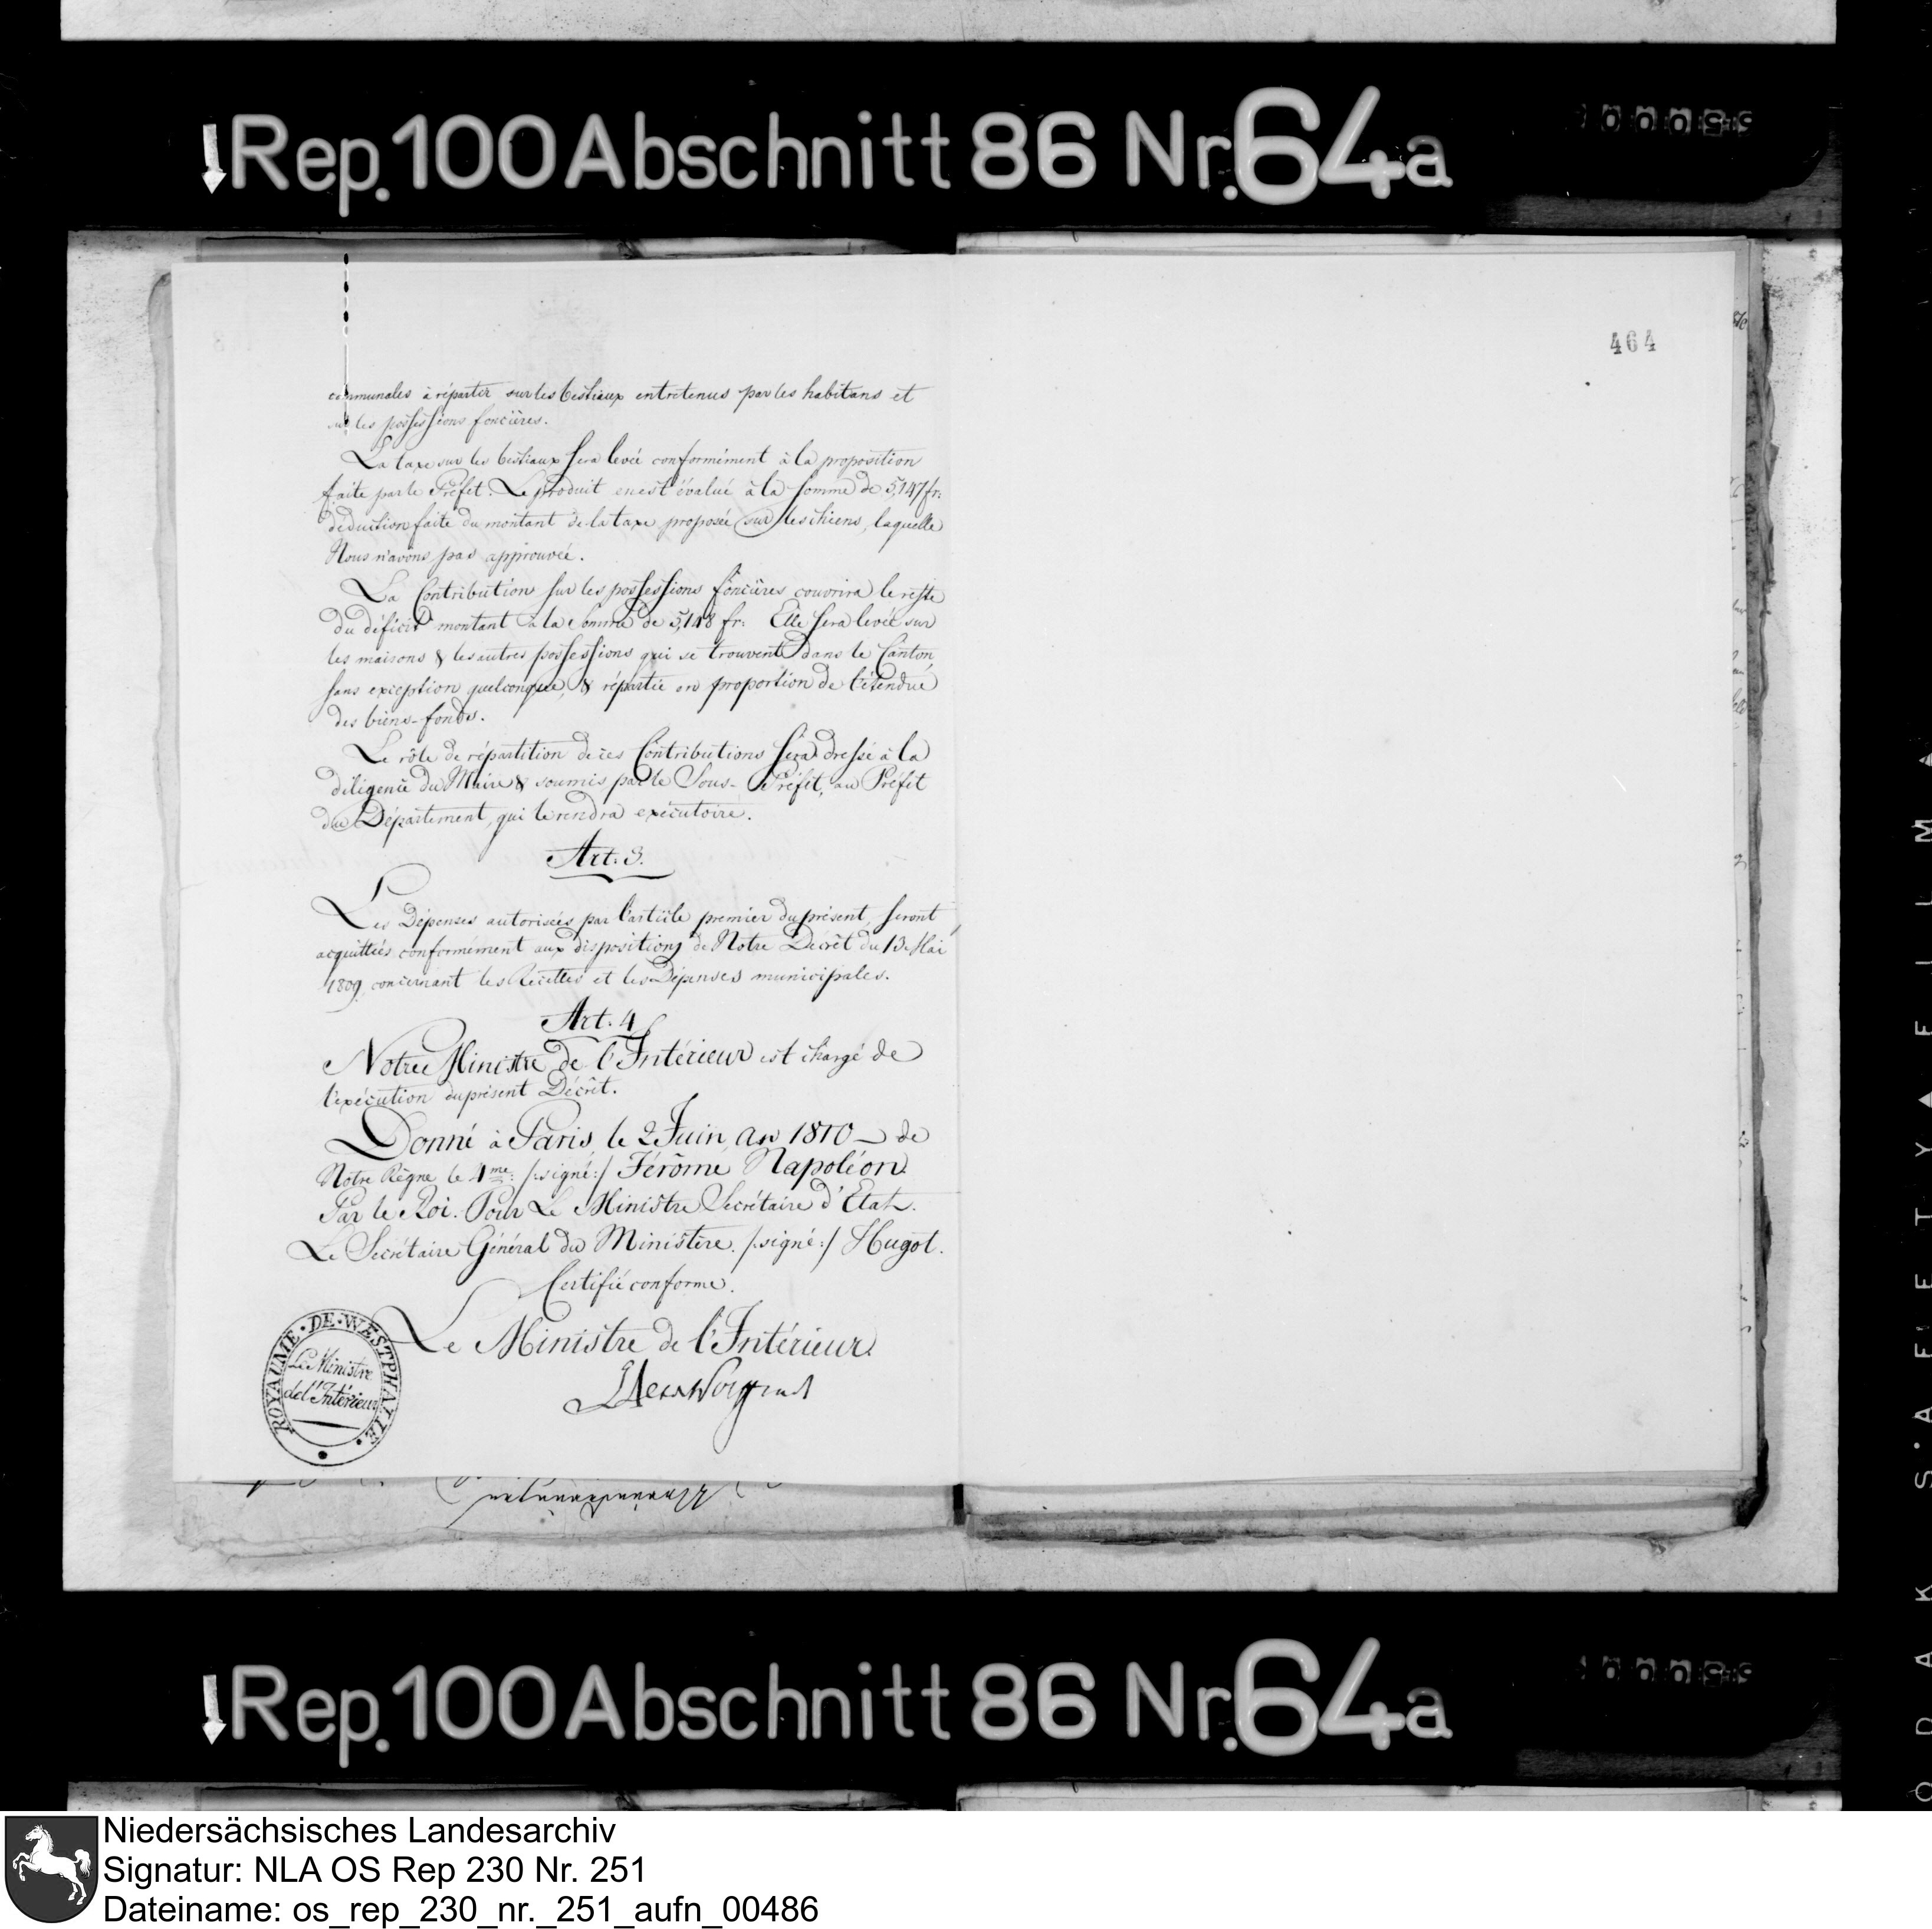 Rep. 100 Abschnitt 86 Nr. 64a
464
communales à répartir sur les bestiaux entretenus par les habitans et
sur les possessions foncières.
La taxe sur les bestiaux sera levée conformément à la proposition
faite par le Préfet. Le produit en est évalué à la somme de 5,147 fr:
déduction faite du montant de la taxe proposée sur les chiens, laquelle
Nous n'avons pas approuvée.
La Contribution sur les possessions foncières couvrira le reste
du déficit montant à la somme de 5,148 fr: Elle sera levée sur
les maisons & les autres possessions qui se trouvent dans le Canton,
sans exception quelconque, & répartie en proportion de l'étendue
des biens-fonds.
Le rôle de répartition de ces Contributions sera dressé à la
diligence du Maire & soumis par le Sous-Préfet, au Préfet
du Département, qui le rendra exécutoire.
Art. 3.
Les Dépenses autorisées par l'article premier du présent, seront
acquittées conformément aux dispositions de Notre Décret du 13 Mai
1809, concernant les Recettes et les Dépenses municipales.
Art. 4
Notre Ministre de l'Intérieur est chargé de
l'exécution du présent Décret.
Donné à Paris, le 2 Juin an 1810 de
Notre Règne le 4me: /:signé:/ Jérôme Napoléon
Par le Roi. Pour Le Ministre Secrétaire d'Etat.
Le Secrétaire Général du Ministère. /:signé:/ Hugot.
Certifié conforme.
Le Ministre de l'Intérieur.
ROYAUME · DE · WESTPHALIE ·
Le Ministre
de l'Intérieur
Rep. 100 Abschnitt 86 Nr. 64a
Niedersächsisches Landesarchiv
Signatur: NLA OS Rep 230 Nr. 251
Dateiname: os_rep_230_nr._251_aufn_00486